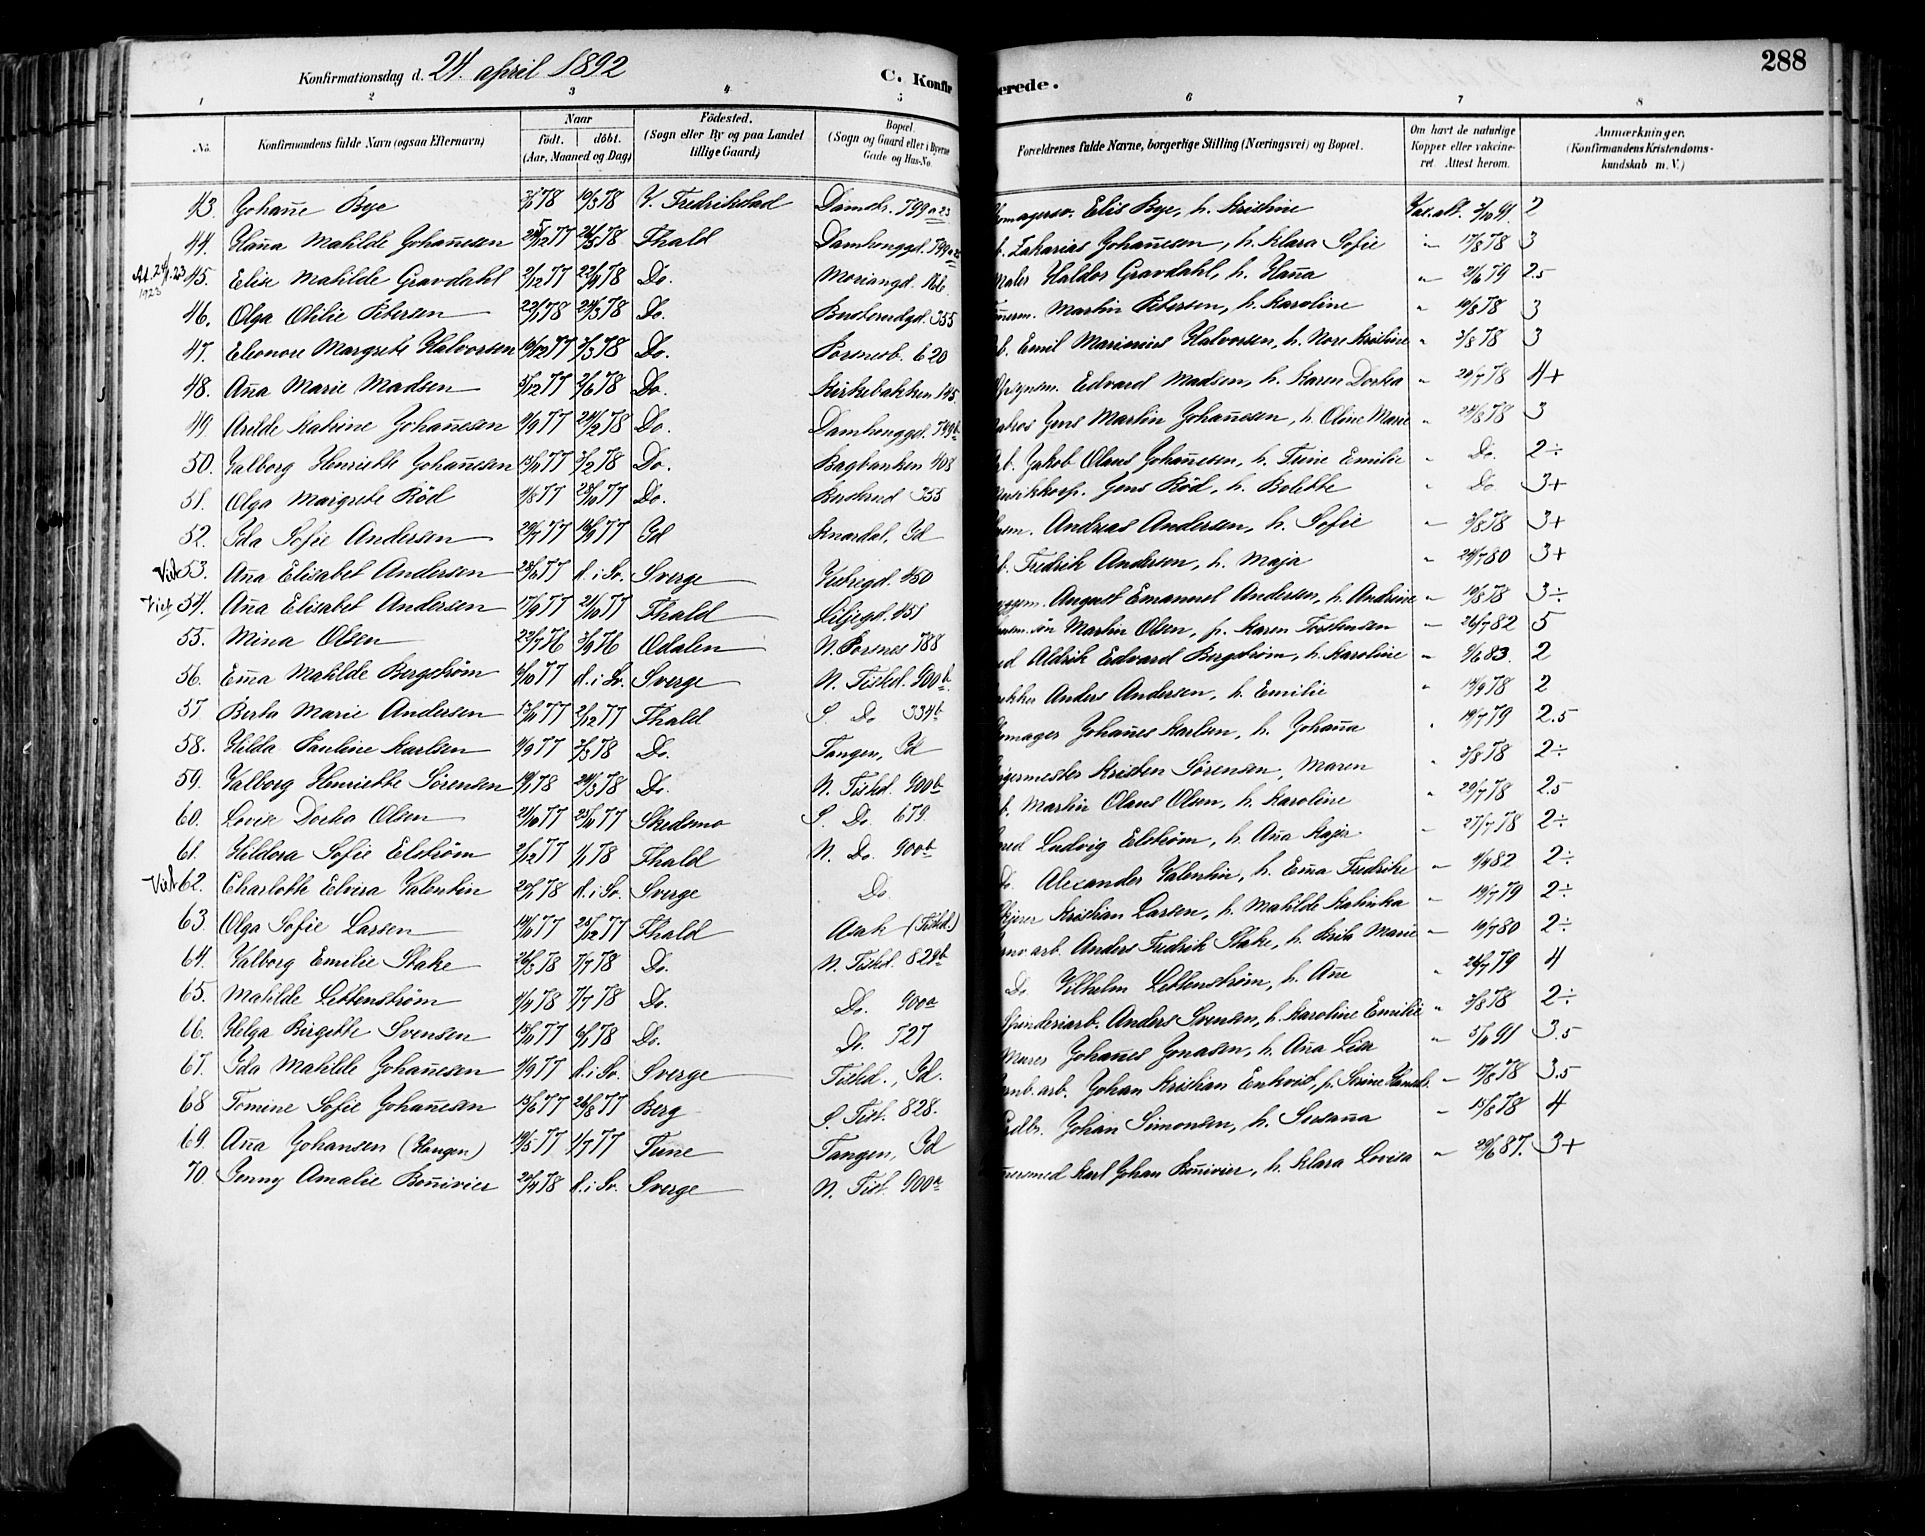 Konfirmationsdag d. 24. april 1892 C. Konfir erede. 288
1 2 3 4 5 6 7 8
No. Konfirmandens fulde Navn (ogsaa Efternavn) Naar født. døbt. (Aar, Maaned og Dag) Fødested. (Sogn eller By og paa Landet tillige Gaard) Bopæl. (Sogn og Gaard eller i Byerne Gade og Hus-No. Forældrenes fulde Navne, borgerlige Stilling (Næringsvei) og Bopæl. Om havt de naturlige Kopper eller vakcineret. Attest herom. Anmærkninger. (Konfirmandens Kristendomskundskab m. V.)
43. Johan̄e Bye 78 10/3 78 V. Fredrikstad Damstr. 799 a 23 Elis Bye, h. Kristine Vac. att. 3/10 91 2
44. Han̄a Mathilde Johan̄esen 77 78 Fhald Damhenggd. Zakarias Johan̄esen, h. Klara Sofie " 17/8 78 3
45. Elise Mathilde Gravdahl 2/12 77 22/9 78 Do. Moriangd. 166. Maler Haldor Gravdahl, h. Han̄a " 21/6 79 2.5
46. Olga Otilie Petersen 22/1 78 24/3 78 Do. Busterudgd. 355 Martin Petersen, h. Karoline " 10/8 78 3
47. Eleonore Margrete Halvorsen 19/12 77 3/3 78 Do. Porsnesb. 620 Emil Marinius Halvorsen, h. Nora Kristine " 3/8 78 3
48. An̄a Marie Madsen 5/12 77 2/6 78 Do. Kirkebakken 145. Opsynsm. Edvard Madsen, h. Karen Dorka " 20/7 78 4+
49 Arilde Katrine Johan̄esen 9/9 77 24/2 78 Do. Damhenggd. 749b Jens Martin Johan̄esen, h. Oline Marie " 24/8 78 3
50. Valborg Henriette Johan̄esen 13/11 77 3/2 78 Do. Bagbanken 408 Jakob Olaus Johan̄esen, h. Trine Emilie " Do. 2÷
51. Olga Margrete Röd 9/8 77 28/10 77 Do. Busterud 355 Jens Röd, h. Bolette " Do 3+
52. Ida Sofie Andersen 29/7 77 16/9 77 Id Knardal, Id Andreas Andersen, h. Sofie " 3/8 78 3+
Vist 53. An̄a Elisabet Andersen 23/6 77 d. i Sv. Sverge Vestregd. 450 Fredrik Andersen, h. Maja " 24/7 80 3+
Viet 54. An̄a Elisabet Andersen 17/9 77 21/10 77 Fhald Liljegd. 451 August Emanuel Andersen, h. Andrine " 10/8 78 3÷
55. Mina Olsen 23/7 76 3/9 76 Odalen N. Porsnes 788 Martin Olsen, p. Karen Torstensen " 26/7 82 5
56. Em̄a Mathilde Bergström 9/10 77 d. i Sv. Sverge N. Tistd. 900b Aldrik Edvard Bergström, h. Karoline " 9/6 83. 2
57 Berta Marie Andersen 13/11 77 2/12 77 Fhald S. Do 334b Anders Andersen, h. Emilie " 14/9 78 2
58. Hilda Pauline Karlsen 9/9 77 3/3 78 Do. Tangen, Id Johan̄es Karlsen, h. Johan̄a " 19/7 79 2.5
59. Valborg Henriette Sörensen 19/1 78 24/3 78 Do. N. Tistd. 900b Kristen Sörensen, Maren " 3/8 78 2÷
60. Lovise Dorka Olsen 21/10 77 25/11 77 Skedsmo S. Do. 679. Martin Olaus Olsen, h. Karoline " 20/7 78 2.5
61. Hildora Sofie Elström 2/12 77 1/1 78 Fhald N. Do. 900b Ludvig Elström, h. An̄a Kajsa " 27/7 78 2÷
Vist 62. Charlotte Elvira Valentin 20/1 78 d. i Sv. Sverge Do. Do. Alexander Valentin, h. Em̄a Fredrike " 9/4 82 2÷
63. Olga Sofie Larsen 14/11 77 25/12 77 Fhald Asak (Tistd.) Kristian Larsen, h. Matilde Katinka " 19/7 79 2÷
64. Valborg Emilie Stake 26/3 78 7/7 78 Do. N. Tistd. 829b arb. Anders Fredrik Stake, h. Brita Marie " 10/7 80 2÷
65. Matilde Lettenström 4/4 78 7/7 78 Do. Do. 900a Do Vilhelm Lettenström, h. An̄e " 26/7 79 4
66. Helga Birgitte Svensen 15/11 77 6/1 78 Do. Do. 727 Spinderiarb. Anders Svensen, h. Karoline Emilie " 3/8 78 2÷
67. Ida Matilde Johan̄esen 4/9 77 d. i Sv. Sverge Tistd., Id. Murer Johan̄es Jonasen, h. An̄a Lisa " 5/6 91 3.5
68 Tomine Sofie Johan̄esen 13/6 77 26/8 77 Berg S. Tist. 828. arb. Johan Kristian Enkvist, p. Serine " 17/8 78 3.5
69. An̄a Johansen (Haugen) 19/5 77 1/7 77 Tune Tangen, Id Johan Simonsen, h. Susan̄a " 15/8 78 4
70 Jenny Amalie Bon̄ivier 25/4 78 d. i Sv. Sverge N. Tist. 900a Karl Johan Bon̄ivier, h. Klara Lovisa " 29/6 87. 3+